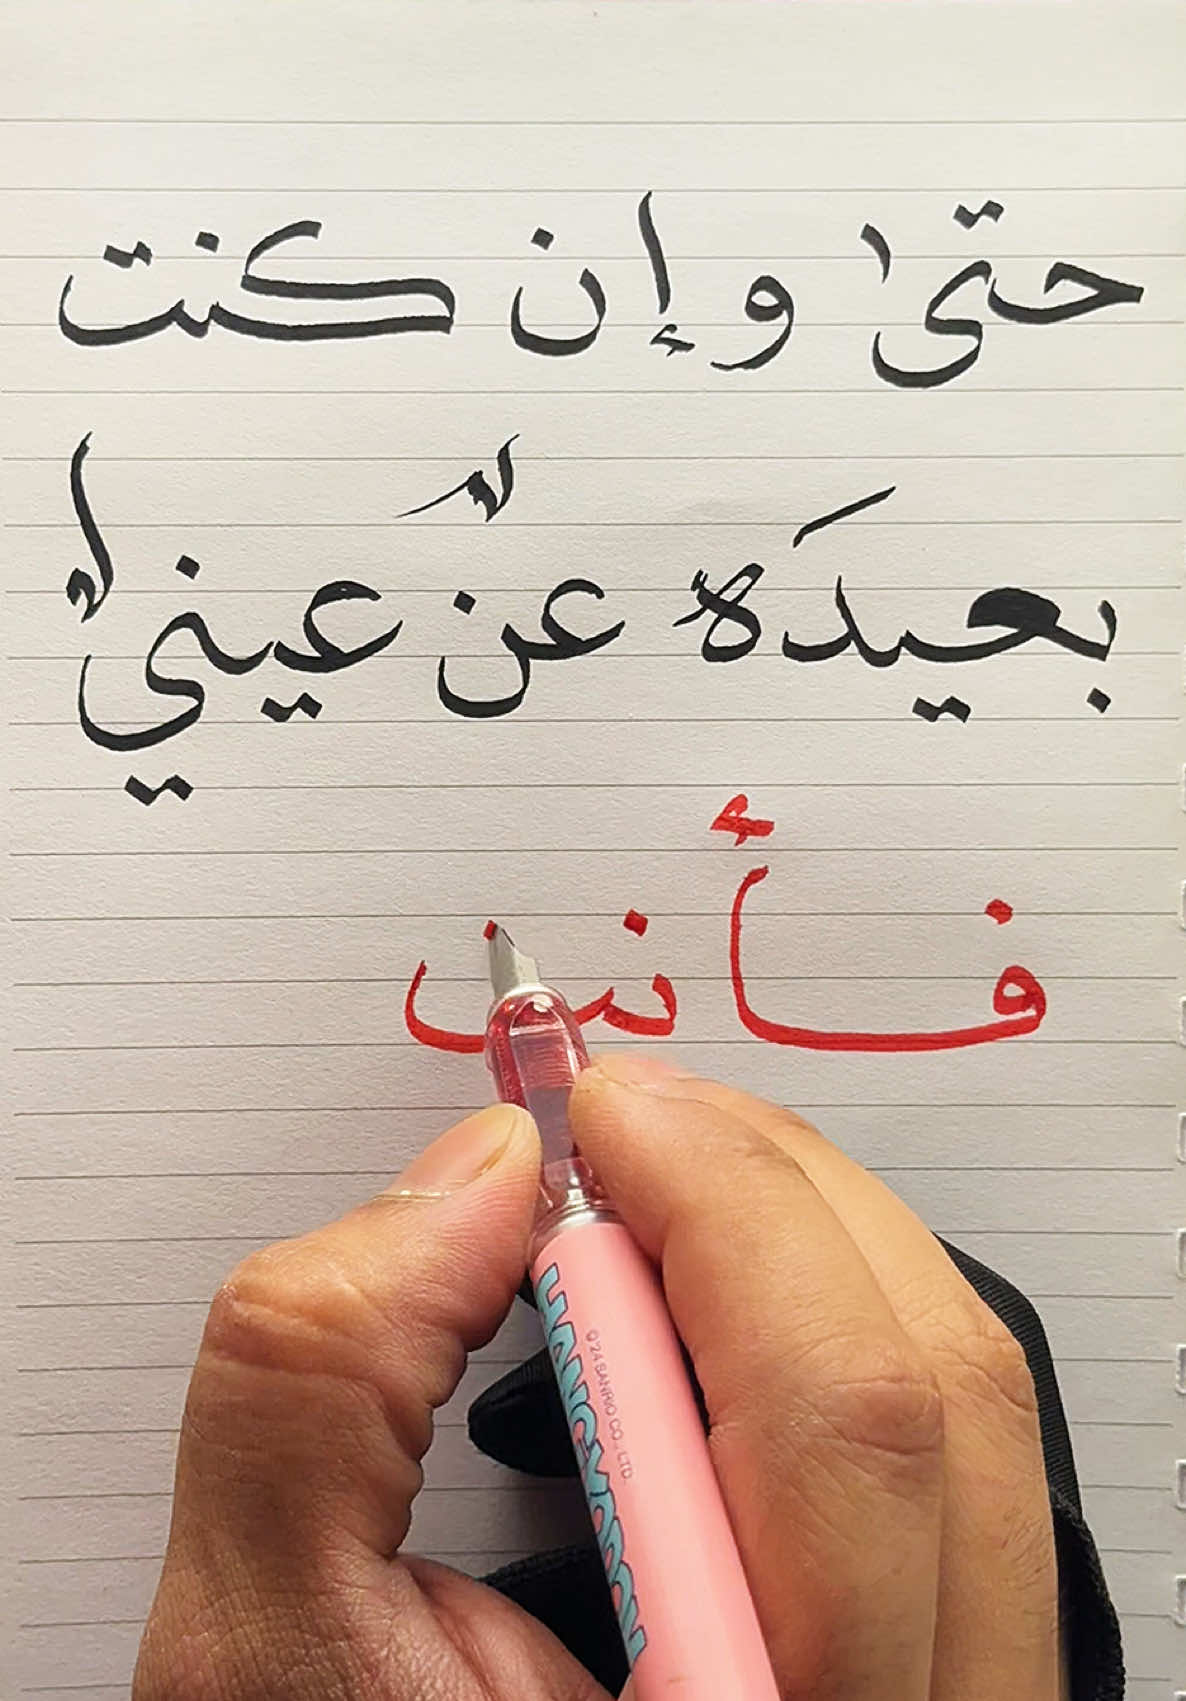 حتىٰ وإن كنت
بعيدَه عن عيني
فأنت
HANGYODON
© '24 SANRIO CO., LTD.